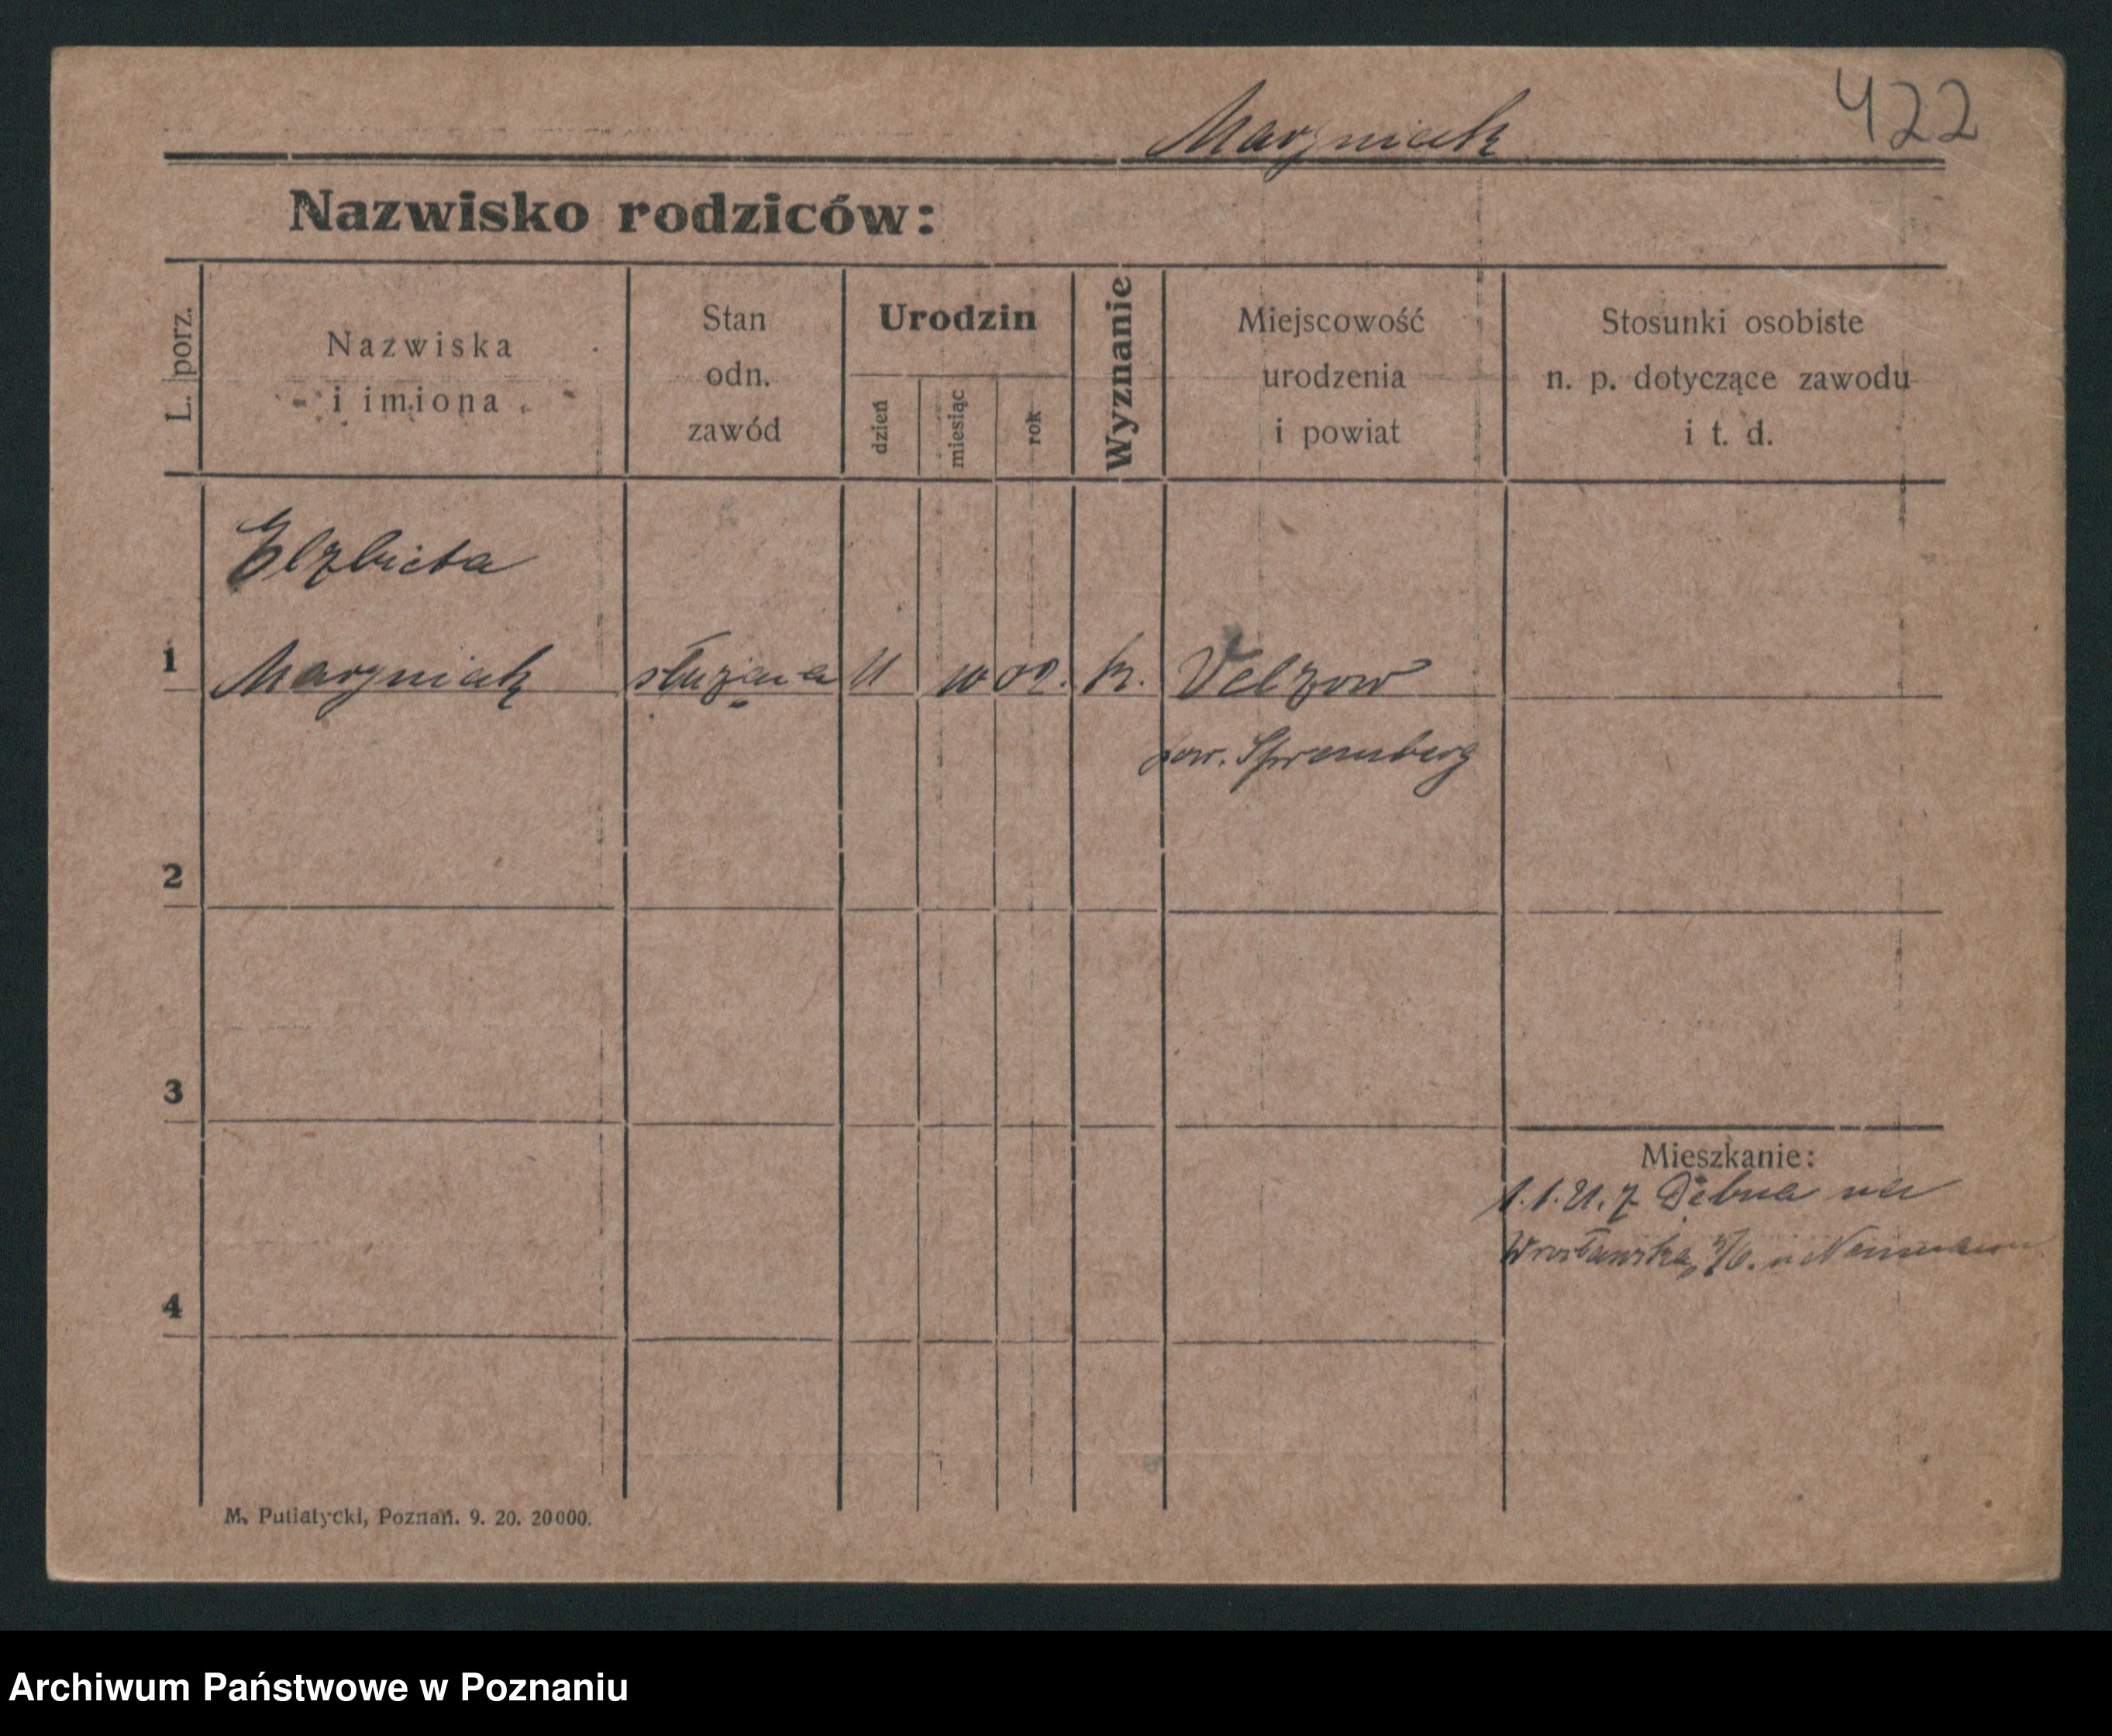 422
Marzniak
Nazwisko rodziców:
L. porz.
Nazwiska
i imiona
Stan
odn.
zawód
Urodzin
dzień
miesiąc
rok
Wyznanie
Miejscowość
urodzenia
i powiat
Stosunki osobiste
n. p. dotyczące zawodu
i t. d.
Elzbieta
1 Marzniak służąca 11 10 02. k. Velzow
pow. Spremberg
2
3
Mieszkanie:
1.1.21. z Dębna na
Wrocławska
4
M. Putiatycki, Poznań. 9. 20. 20000.
Archiwum Państwowe w Poznaniu